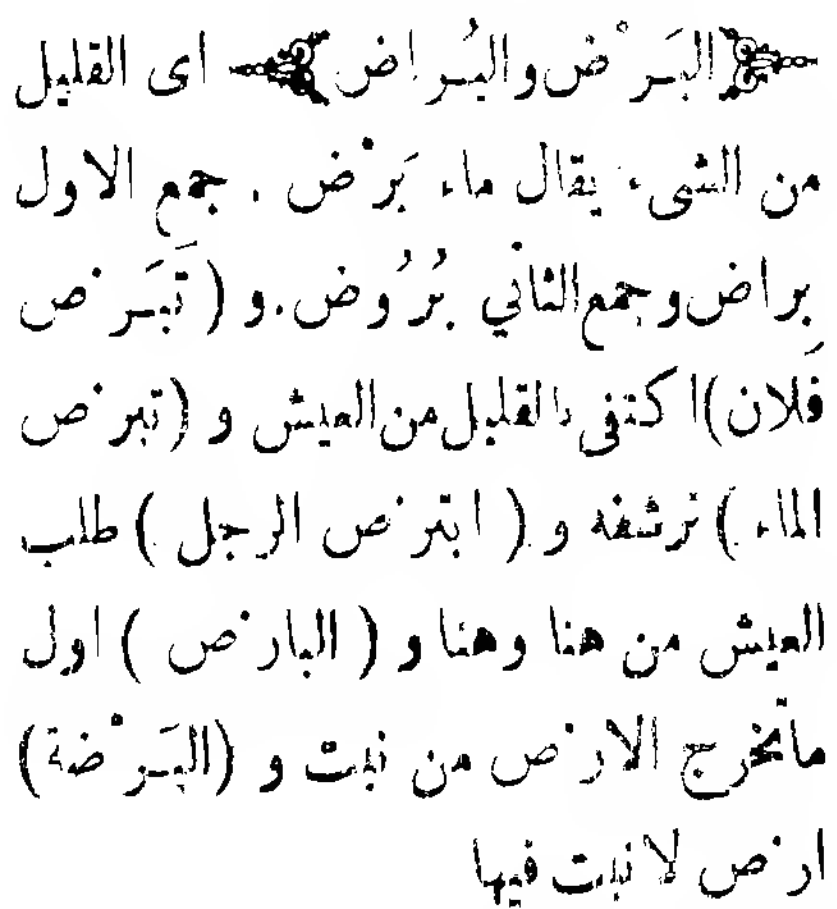 ﴿البَرْض والبُراض﴾ اى القليل
من الشىء يقال ماء بَرْض . جمع الاول
براض وجمع الثاني بُرُوض . و ( تَبَرَّض
فلان ) اكتفى بالقليل من العيش و ( تبرض
الماء ) ترشفه و ( ابترض الرجل ) طلب
العيش من هنا وهنا و ( البارض ) اول
ماتخرج الارض من نبت و ( البَرْضة )
ارض لا نبت فيها